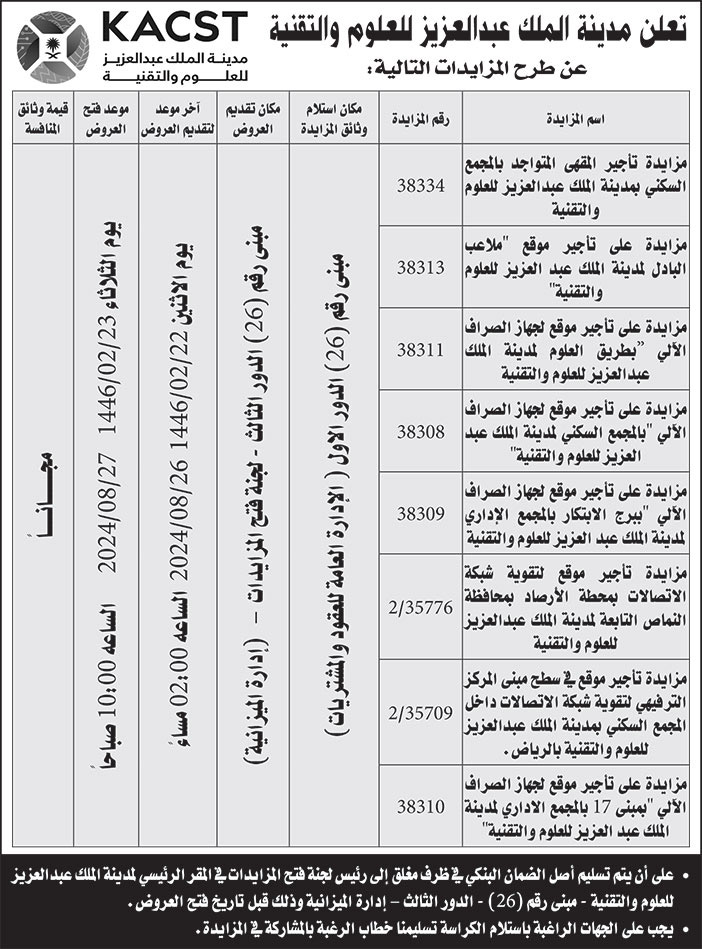 تعلن مدينة الملك عبدالعزيز للعلوم والتقنية
عن طرح المزايدات التالية:
KACST
مدينة الملك عبدالعزيز
للعلوم والتقنية
اسم المزايدة
رقم المزايدة
مكان استلام
وثائق المزايدة
مكان تقديم
العروض
آخر موعد
لتقديم العروض
موعد فتح
العروض
قيمة وثائق
المنافسة
مزايدة تأجير المقهى المتواجد بالمجمع
السكني بمدينة الملك عبدالعزيز للعلوم
والتقنية
38334
مزايدة على تأجير موقع "ملاعب
البادل لمدينة الملك عبد العزيز للعلوم
والتقنية"
38313
مزايدة على تأجير موقع لجهاز الصراف
الآلي "بطريق العلوم لمدينة الملك
عبدالعزيز للعلوم والتقنية
38311
مزايدة على تأجير موقع لجهاز الصراف
الآلي "بالمجمع السكني لمدينة الملك عبد
العزيز للعلوم والتقنية"
38308
مزايدة على تأجير موقع لجهاز الصراف
الآلي "ببرج الابتكار بالمجمع الإداري
لمدينة الملك عبد العزيز للعلوم والتقنية
38309
مزايدة تأجير موقع لتقوية شبكة
الاتصالات بمحطة الأرصاد بمحافظة
النماص التابعة لمدينة الملك عبدالعزيز
للعلوم والتقنية
2/35776
مزايدة تأجير موقع في سطح مبنى المركز
الترفيهي لتقوية شبكة الاتصالات داخل
المجمع السكني بمدينة الملك عبدالعزيز
للعلوم والتقنية بالرياض.
2/35709
مزايدة على تأجير موقع لجهاز الصراف
الآلي "بمبنى 17 بالمجمع الاداري لمدينة
الملك عبد العزيز للعلوم والتقنية"
38310
مبنى رقم (26) الدور الاول (الإدارة العامة للعقود والمشتريات)
مبنى رقم (26) الدور الثالث - لجنة فتح المزايدات - (إدارة الميزانية)
يوم الاثنين 1446/02/22 2024/08/26 الساعه 02:00 مساءً
يوم الثلاثاء 1446/02/23 2024/08/27 الساعه 10:00 صباحاً
مجاناً
• على أن يتم تسليم أصل الضمان البنكي في ظرف مغلق إلى رئيس لجنة فتح المزايدات في المقر الرئيسي لمدينة الملك عبدالعزيز
للعلوم والتقنية - مبنى رقم (26) - الدور الثالث – إدارة الميزانية وذلك قبل تاريخ فتح العروض.
• يجب على الجهات الراغبة باستلام الكراسة تسليمنا خطاب الرغبة بالمشاركة في المزايدة.